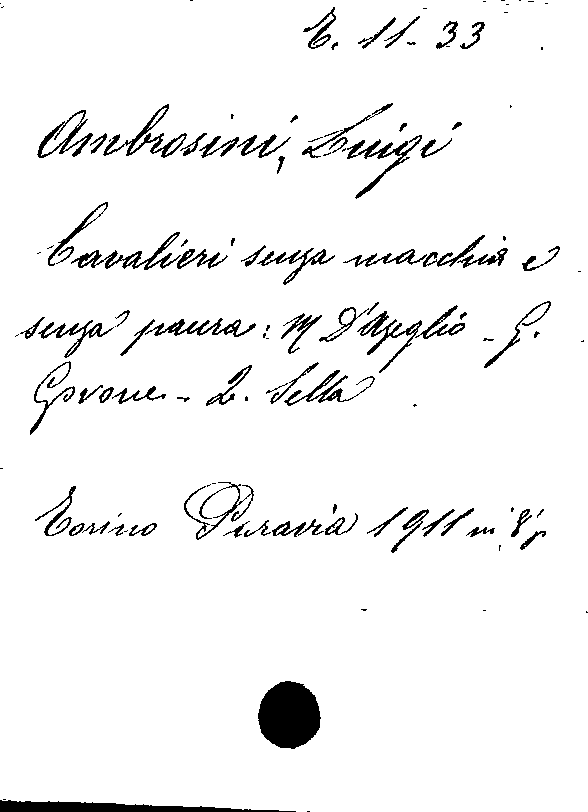 E. 11-33
Ambrosini, Luigi
Cavalieri senza macchia e
senza paura: M D'Azeglio - G.
Govone - Q. Sella
Torino Paravia 1911 in 8° p